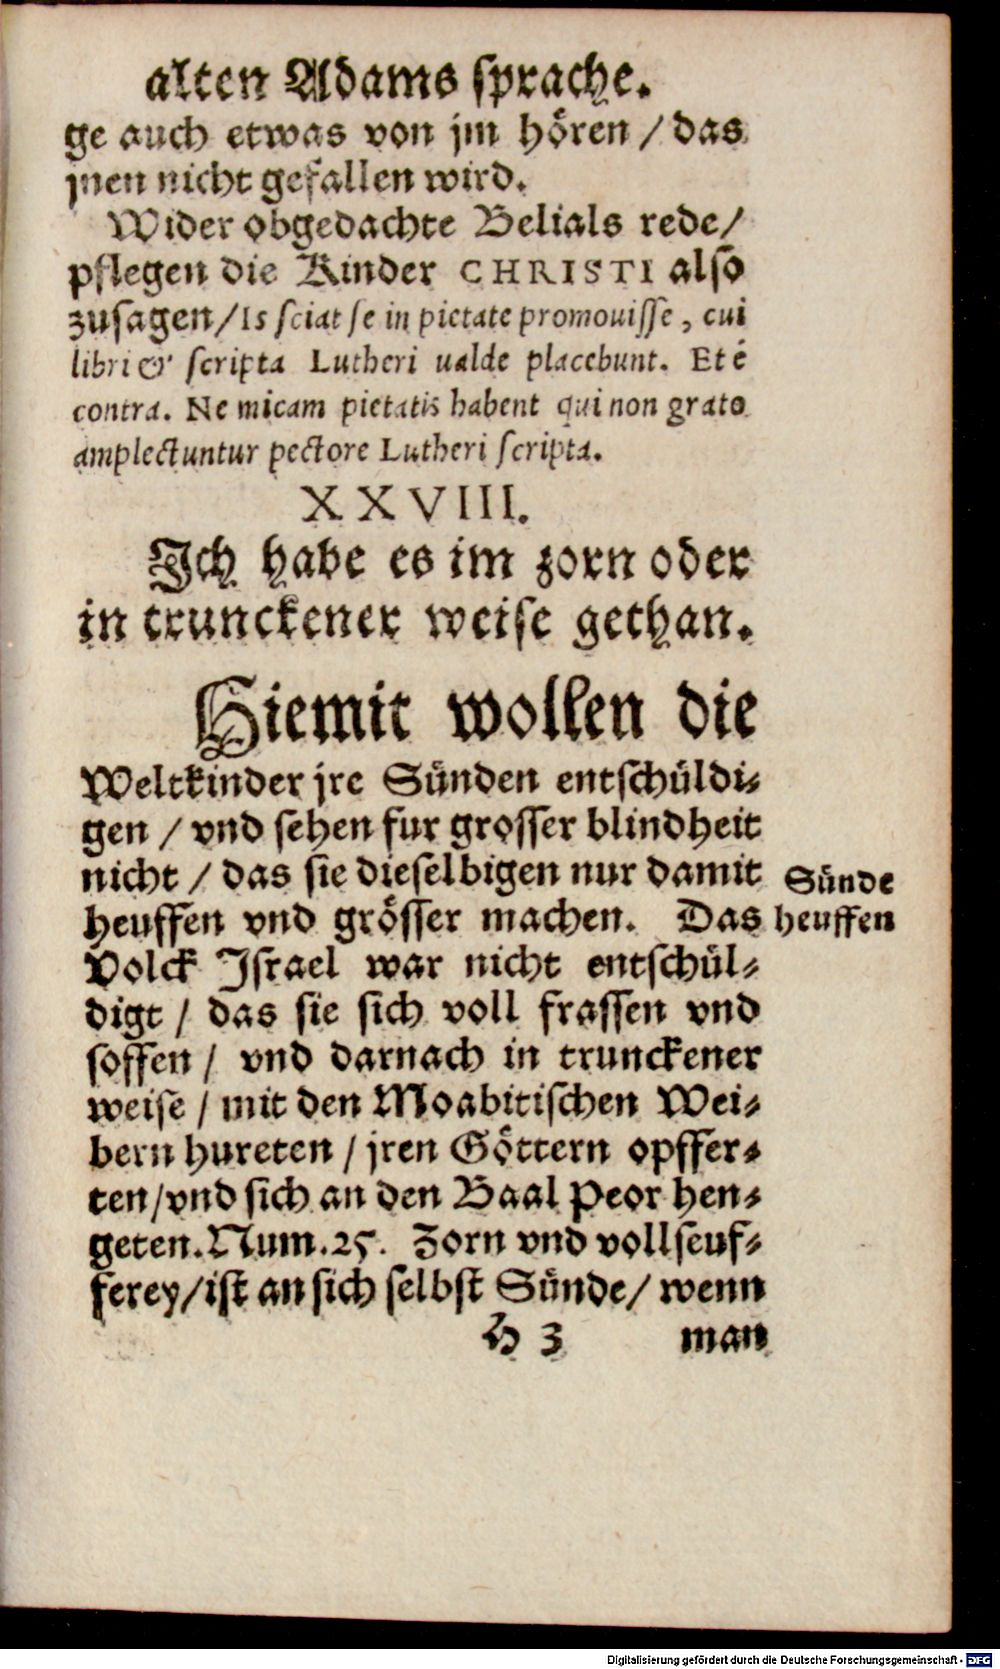 alten Adams sprache.
ge auch etwas von jm hören / das
jnen nicht gefallen wird.
Wider obgedachte Belials rede /
pflegen die Kinder CHRISTI also
zusagen / Is sciat se in pietate promouisse, cui
libri & scripta Lutheri ualde placebunt. Et é
contra. Ne micam pietatis habent qui non grato
amplectuntur pectore Lutheri scripta.
XXVIII.
Ich habe es im zorn oder
in trunckener weise gethan.
Hiemit wollen die
Weltkinder jre Sünden entschüldi⸗
gen / vnd sehen fur grosser blindheit
nicht / das sie dieselbigen nur damit
heuffen vnd grösser machen. Das
Sünde
heuffen
Volck Israel war nicht entschül⸗
digt / das sie sich voll frassen vnd
soffen / vnd darnach in trunckener
weise / mit den Moabitischen Wei⸗
bern hureten / jren Göttern opffer⸗
ten / vnd sich an den Baal Peor hen⸗
geten. Num. 25. Zorn vnd vollseuf⸗
ferey / ist an sich selbst Sünde / wenn
H 3 man
Digitalisierung gefördert durch die Deutsche Forschungsgemeinschaft - DFG